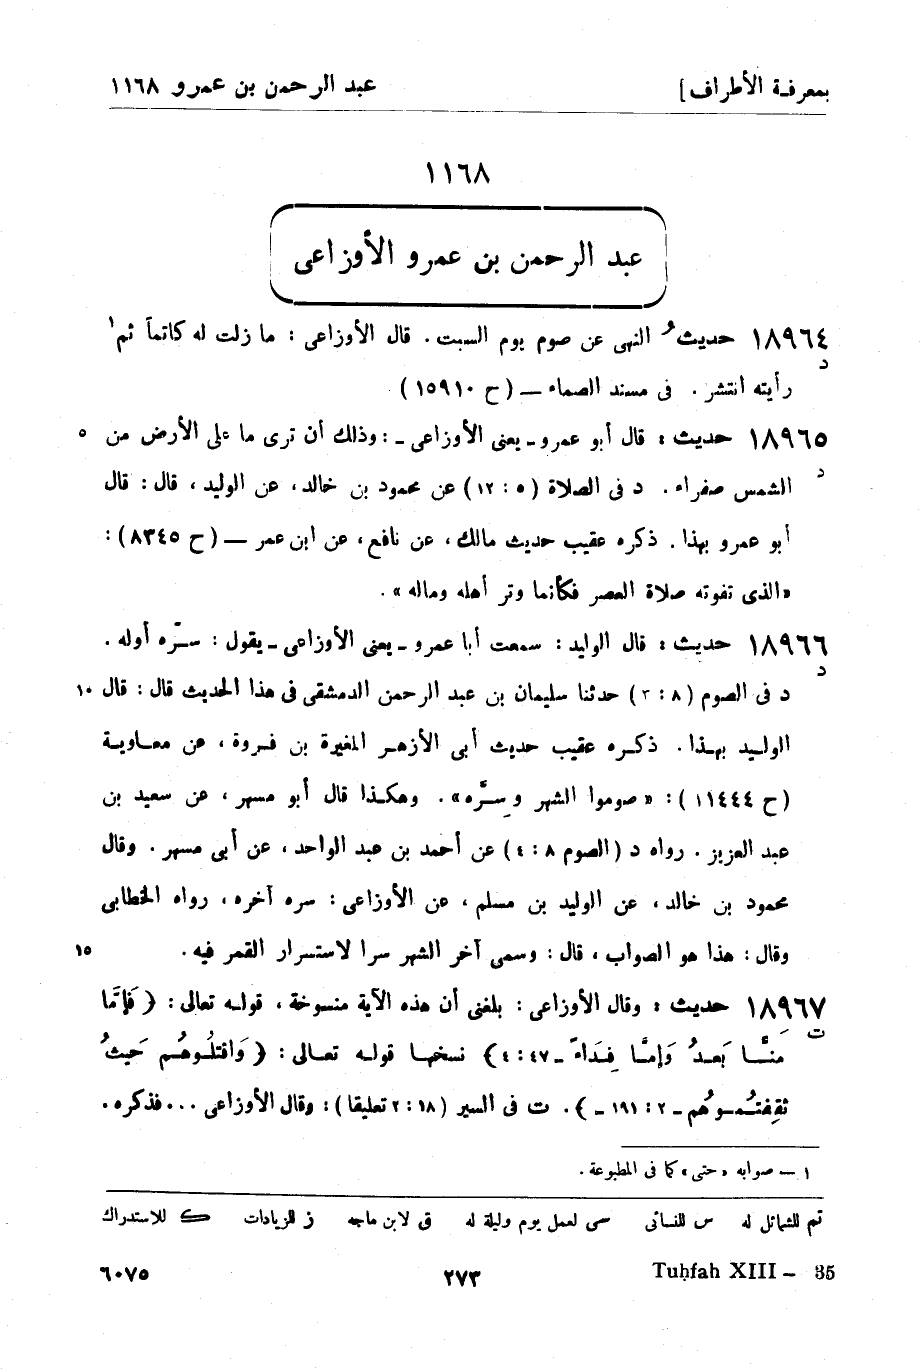 بمعرفة الأطراف] عبد الرحمن بن عمرو ١١٦٨
١١٦٨
عبد الرحمن بن عمرو الأوزاعى
١٨٩٦٤ حديثُ النهى عن صوم يوم السبت. قال الأوزاعى: ما زلت له كاتماً ثم١
د
رأيته انتشر. فى مسند الصماء — (ح ١٥٩١٠)
١٨٩٦٥ حديث: قال أبو عمرو ـ يعنى الأوزاعى ـ: وذلك أن ترى ما على الأرض من ٥
د
الشمس صفراء. د فى الصلاة (٥: ١٢) عن محمود بن خالد، عن الوليد، قال: قال
أبو عمرو بهذا. ذكره عقيب حديث مالك، عن نافع، عن ابن عمر — (ح ٨٣٤٥):
«الذى تفوته صلاة العصر فكأنما وتر أهله وماله».
١٨٩٦٦ حديث: قال الوليد: سمعت أبا عمرو ـ يعنى الأوزاعى ـ يقول: سرّه أوله.
د
د فى الصوم (٨: ٣) حدثنا سليمان بن عبد الرحمن الدمشقى فى هذا الحديث قال: قال ١٠
الوليد بهذا. ذكره عقيب حديث أبى الأزهر المغيرة بن فروة، عن معاوية
(ح ١١٤٤٤): «صوموا الشهر وسِرَّه». وهكذا قال أبو مسهر، عن سعيد بن
عبد العزيز. رواه د (الصوم ٨: ٤) عن أحمد بن عبد الواحد، عن أبى مسهر. وقال
محمود بن خالد، عن الوليد بن مسلم، عن الأوزاعى: سره آخره، رواه الخطابى
وقال: هذا هو الصواب، قال: وسمى آخر الشهر سرا لاستسرار القمر فيه. ١٥
١٨٩٦٧ حديث: وقال الأوزاعى: بلغنى أن هذه الآية منسوخة، قوله تعالى: {فَإِمَّا
ت
مَنَّـا بَعـدُ وَإِمَّـا فِـدَاءً ـ ٤٧: ٤} نسخها قوله تعالى: {وَاقتُلُوهُم حَيثُ
ثَقِفتُمُوهُم ـ ٢: ١٩١ ـ}. ت فى السير (١٨: ٢ تعليقا): وقال الأوزاعى ... فذكره.
١ — صوابه «حتى» كما فى المطبوعة.
تم للشمائل له س للنسائى سى لعمل يوم وليلة له ق لابن ماجه ز للزيادات ك للاستدراك
Tuḥfah XIII – 35 ٢٧٣ ٦٠٧٥